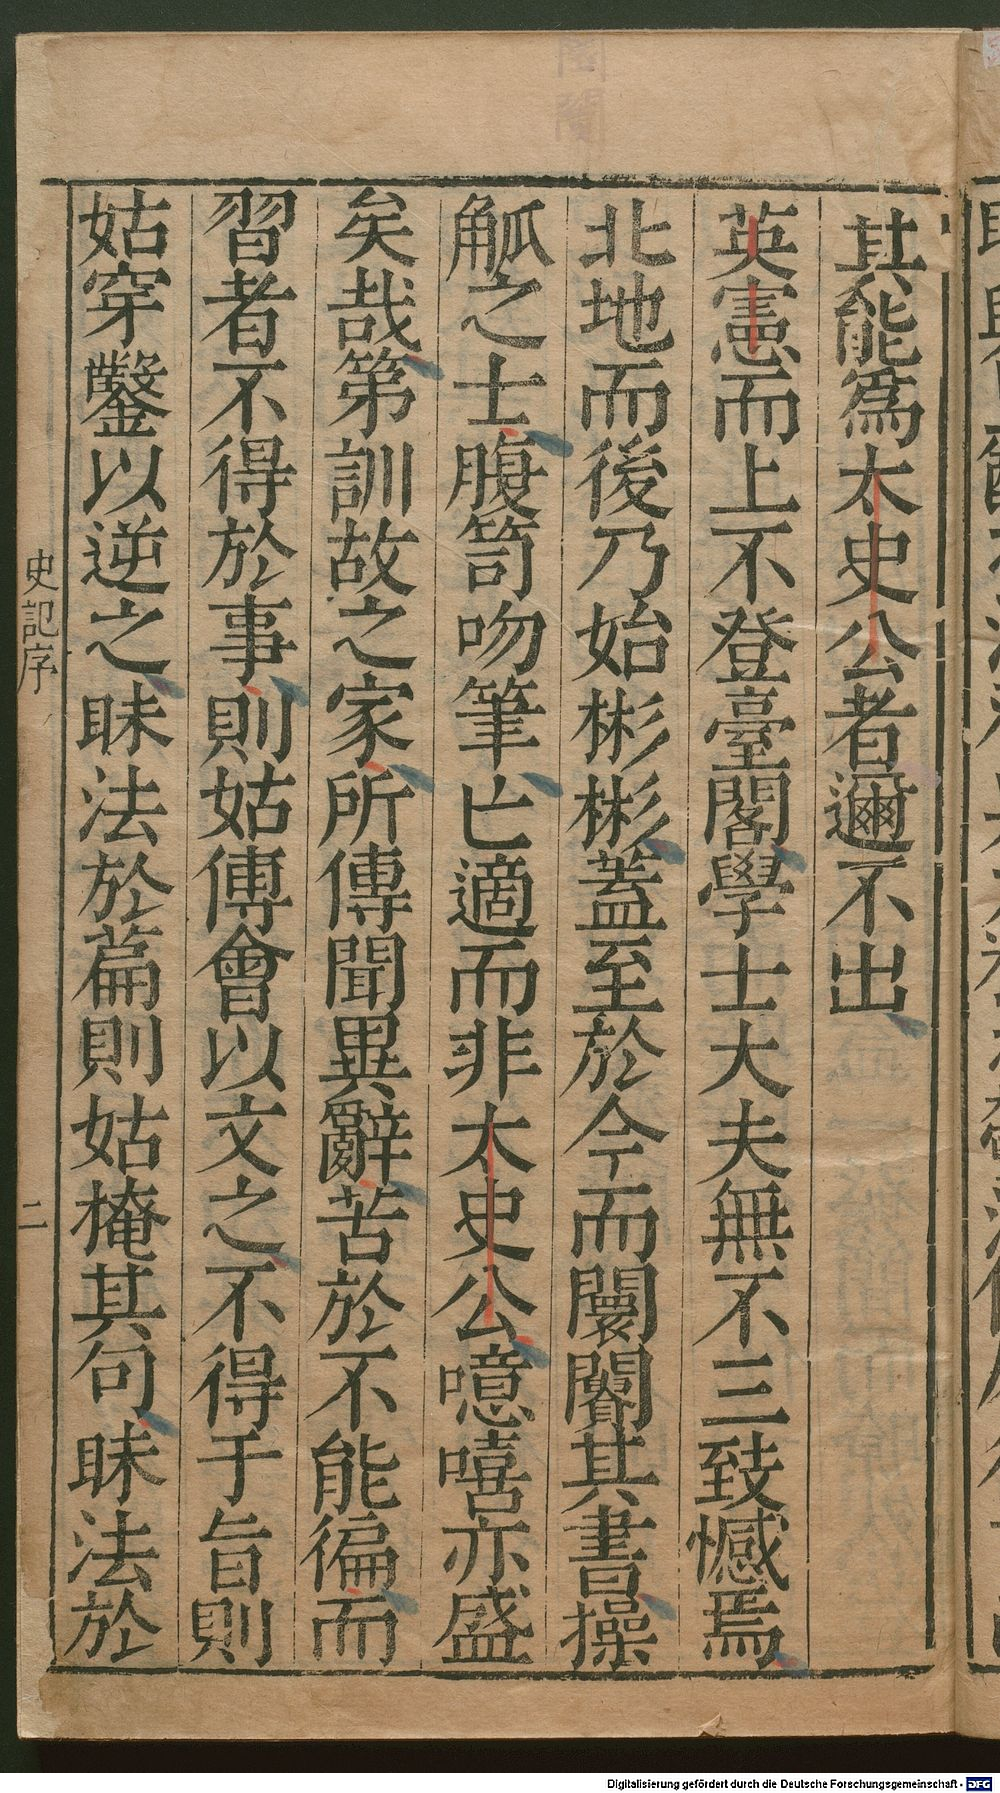 其能爲太史公者邇不出
英憲而上不登臺閣學士大夫無不三致憾焉
北地而後乃始彬彬蓋至於今而闤闠其書操
觚之士腹笥吻筆亡適而非太史公噫嘻亦盛
矣哉第訓故之家所傳聞異辭苦於不能徧而
習者不得於事則姑傅會以文之不得于旨則
姑穿鑿以逆之昧法於篇則姑掩其句昧法於
史記序
二
Digitalisierung gefördert durch die Deutsche Forschungsgemeinschaft - DFG